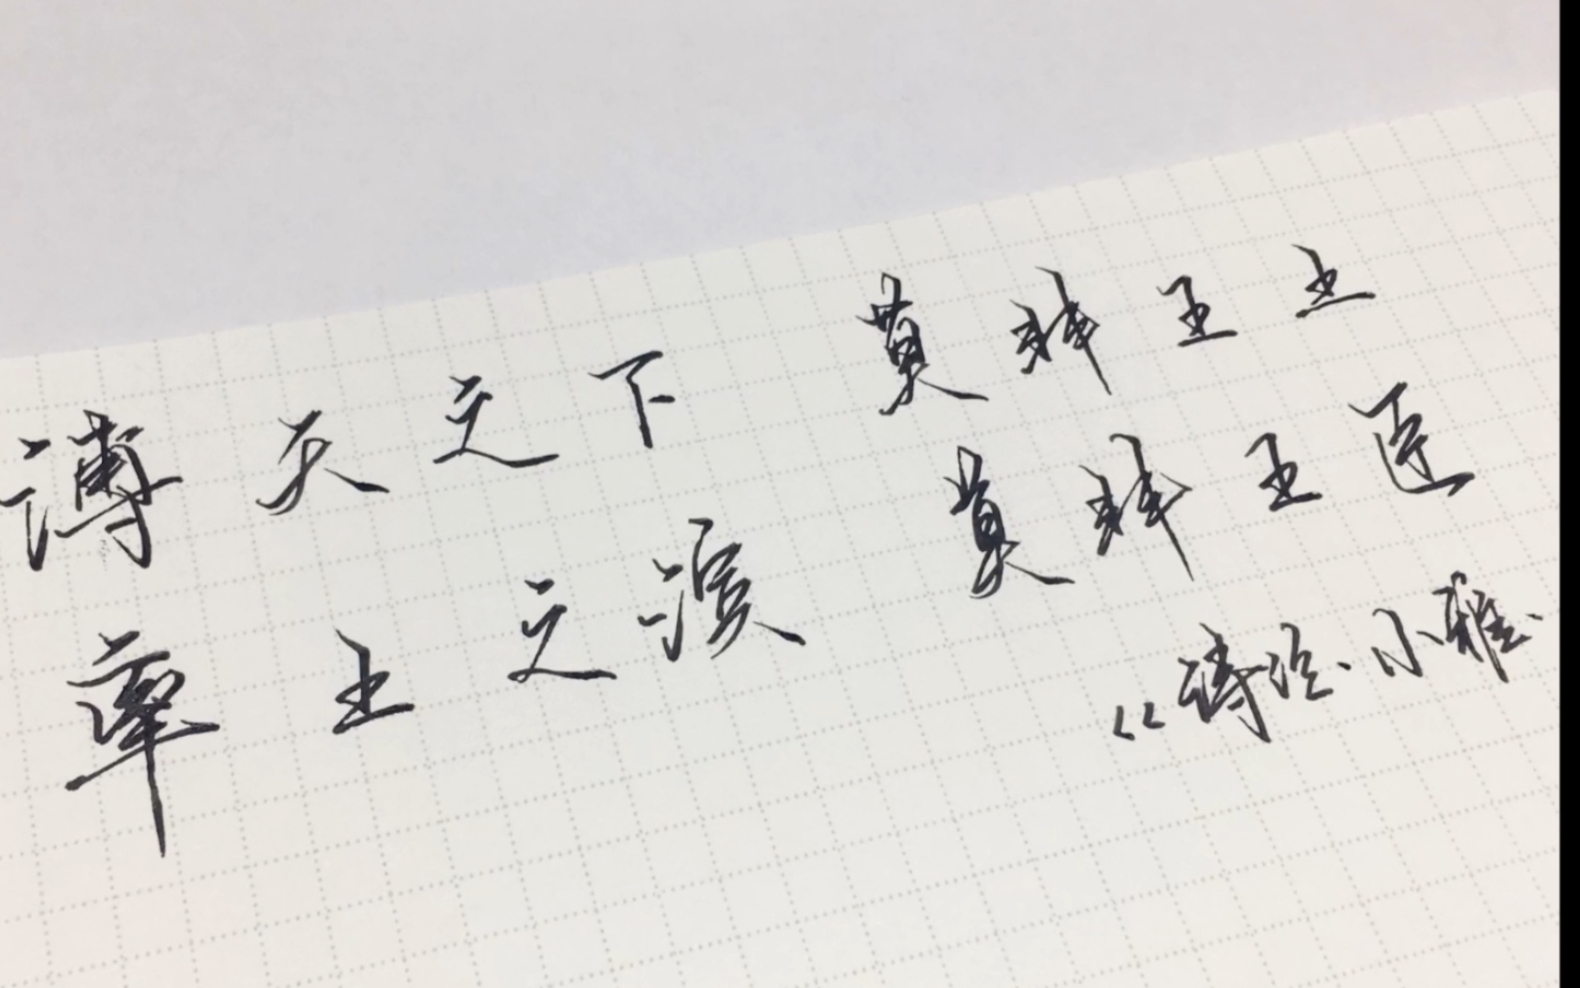 溥天之下 莫非王土
率土之滨 莫非王臣
《诗经·小雅·